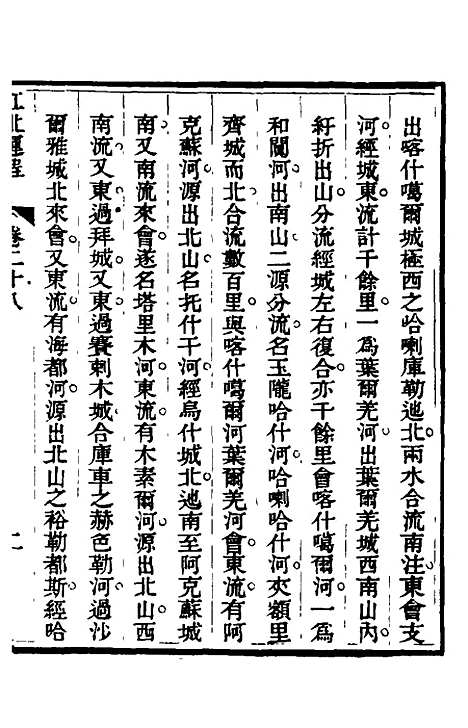 出喀什噶爾城極西之哈喇庫勒池北兩水合流南注東會支
河經城東流計千餘里一為葉爾羌河出葉爾羌城西南山內
紆折出山分流經城左右復合亦千餘里會喀什噶爾河一為
和闐河出南山二源分流名玉隴哈什河哈喇哈什河夾額里
齊城而北合流數百里與喀什噶爾河葉爾羌河會東流有阿
克蘇河源出北山名托什干河經烏什城北迤南至阿克蘇城
南又南流來會遂名塔里木河東流有木素爾河源出北山西
南流又東過拜城又東過賽剌木城合庫車之赫色勒河過沙
爾雅城北來會又東流有海都河源出北山之裕勒都斯經哈
江北運程 卷二十八 二